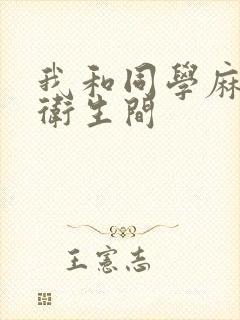 我和同學麻
衛生間
王憲志